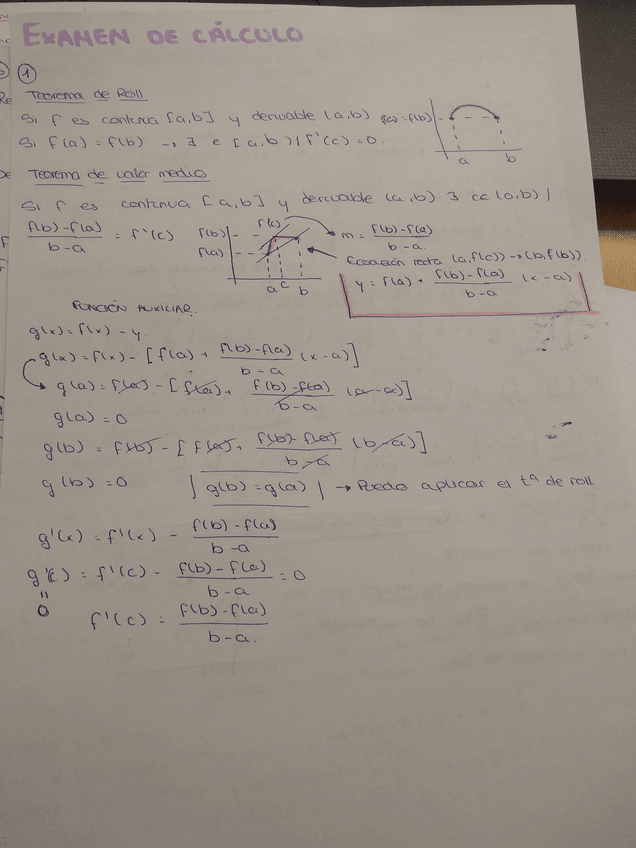 EXAMEN DE CÁLCULO
1
Teorema de Roll
Si f es continua [a,b] y derivable (a,b) f(a)=f(b)
Si f(a) = f(b) → ∃ c [a,b) / f'(c)=0.
a b
Teorema de valor medio
Si f es continua [a,b] y derivable (a,b) ∃ c∈(a,b) /
f(b)-f(a) / b-a = f'(c)
f(b)
f(a)
f(c)
a c b
m = f(b)-f(a) / b-a.
Ecuación recta (a,f(c)) → (b,f(b)).
y = f(a) + f(b)-f(a) / b-a (x-a)
FUNCIÓN AUXILIAR.
g(x) = f(x) - y.
g(x) = f(x) - [f(a) + f(b)-f(a) / b-a (x-a)]
g(a) = f(a) - [f(a) + f(b)-f(a) / b-a (a-a)]
g(a) = 0
g(b) = f(b) - [f(a) + f(b)-f(a) / b-a (b-a)]
g(b) = 0 | g(b) = g(a) | → Puedo aplicar el tª de roll.
g'(x) = f'(x) - f(b)-f(a) / b-a
g'(c) = f'(c) - f(b)-f(a) / b-a = 0
"
0
f'(c) = f(b)-f(a) / b-a.